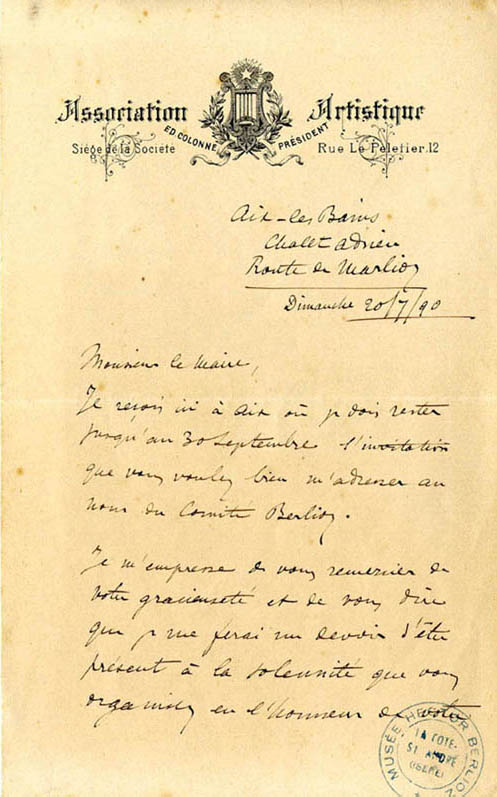 Association Artistique
ED. COLONNE PRÉSIDENT
Siège de la Société Rue Le Peletier. 12
Aix-les-Bains
Chalet Adrien
Route de Marlioz
Dimanche 20/7/90
Monsieur le Maire,
Je reçois ici à Aix où je dois rester
jusqu'au 30 Septembre l'invitation
que vous voulez bien m'adresser au
nom du Comité Berlioz.
Je m'empresse de vous remercier de
votre gracieuseté et de vous dire
que je me ferai un devoir d'être
présent à la solennité que vous
organisez en l'honneur de votre
MUSÉE HECTOR BERLIOZ
LA COTE-
ST ANDRÉ
(ISÈRE)